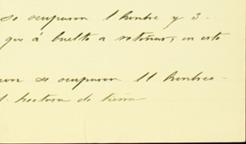 se ocuparon 1 hombre y 3
que á buelto a retoñar, en esto
se ocuparon 11 hombres
hectarea de tierra